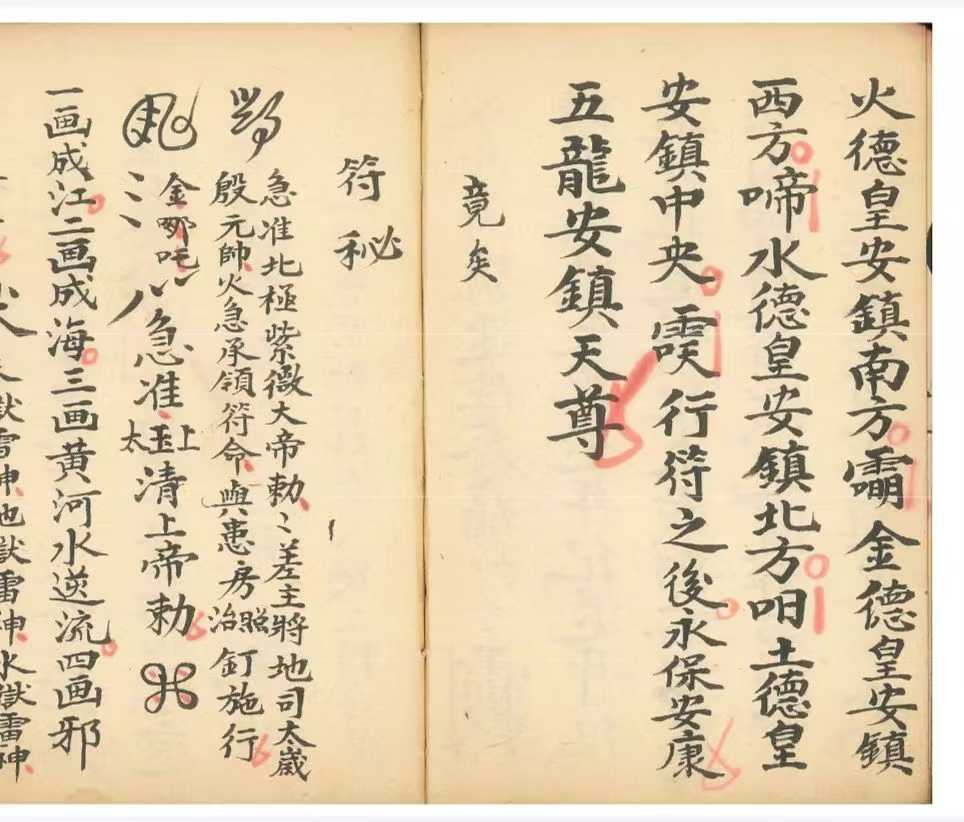 火德皇安鎮南方金德皇安鎮
西方啼水德皇安鎮北方呬土德皇
安鎮中央行符之後永保安康
五龍安鎮天尊
竟矣
符秘
急准北極紫微大帝勅〻差主將地司太歲
殷元帥火急承領符命與患房照治釘施行
金哪吒急准玉上太清上帝勅
一画成江二画成海三画黄河水逆流四画邪
獄雷神地獄雷神水獄雷神